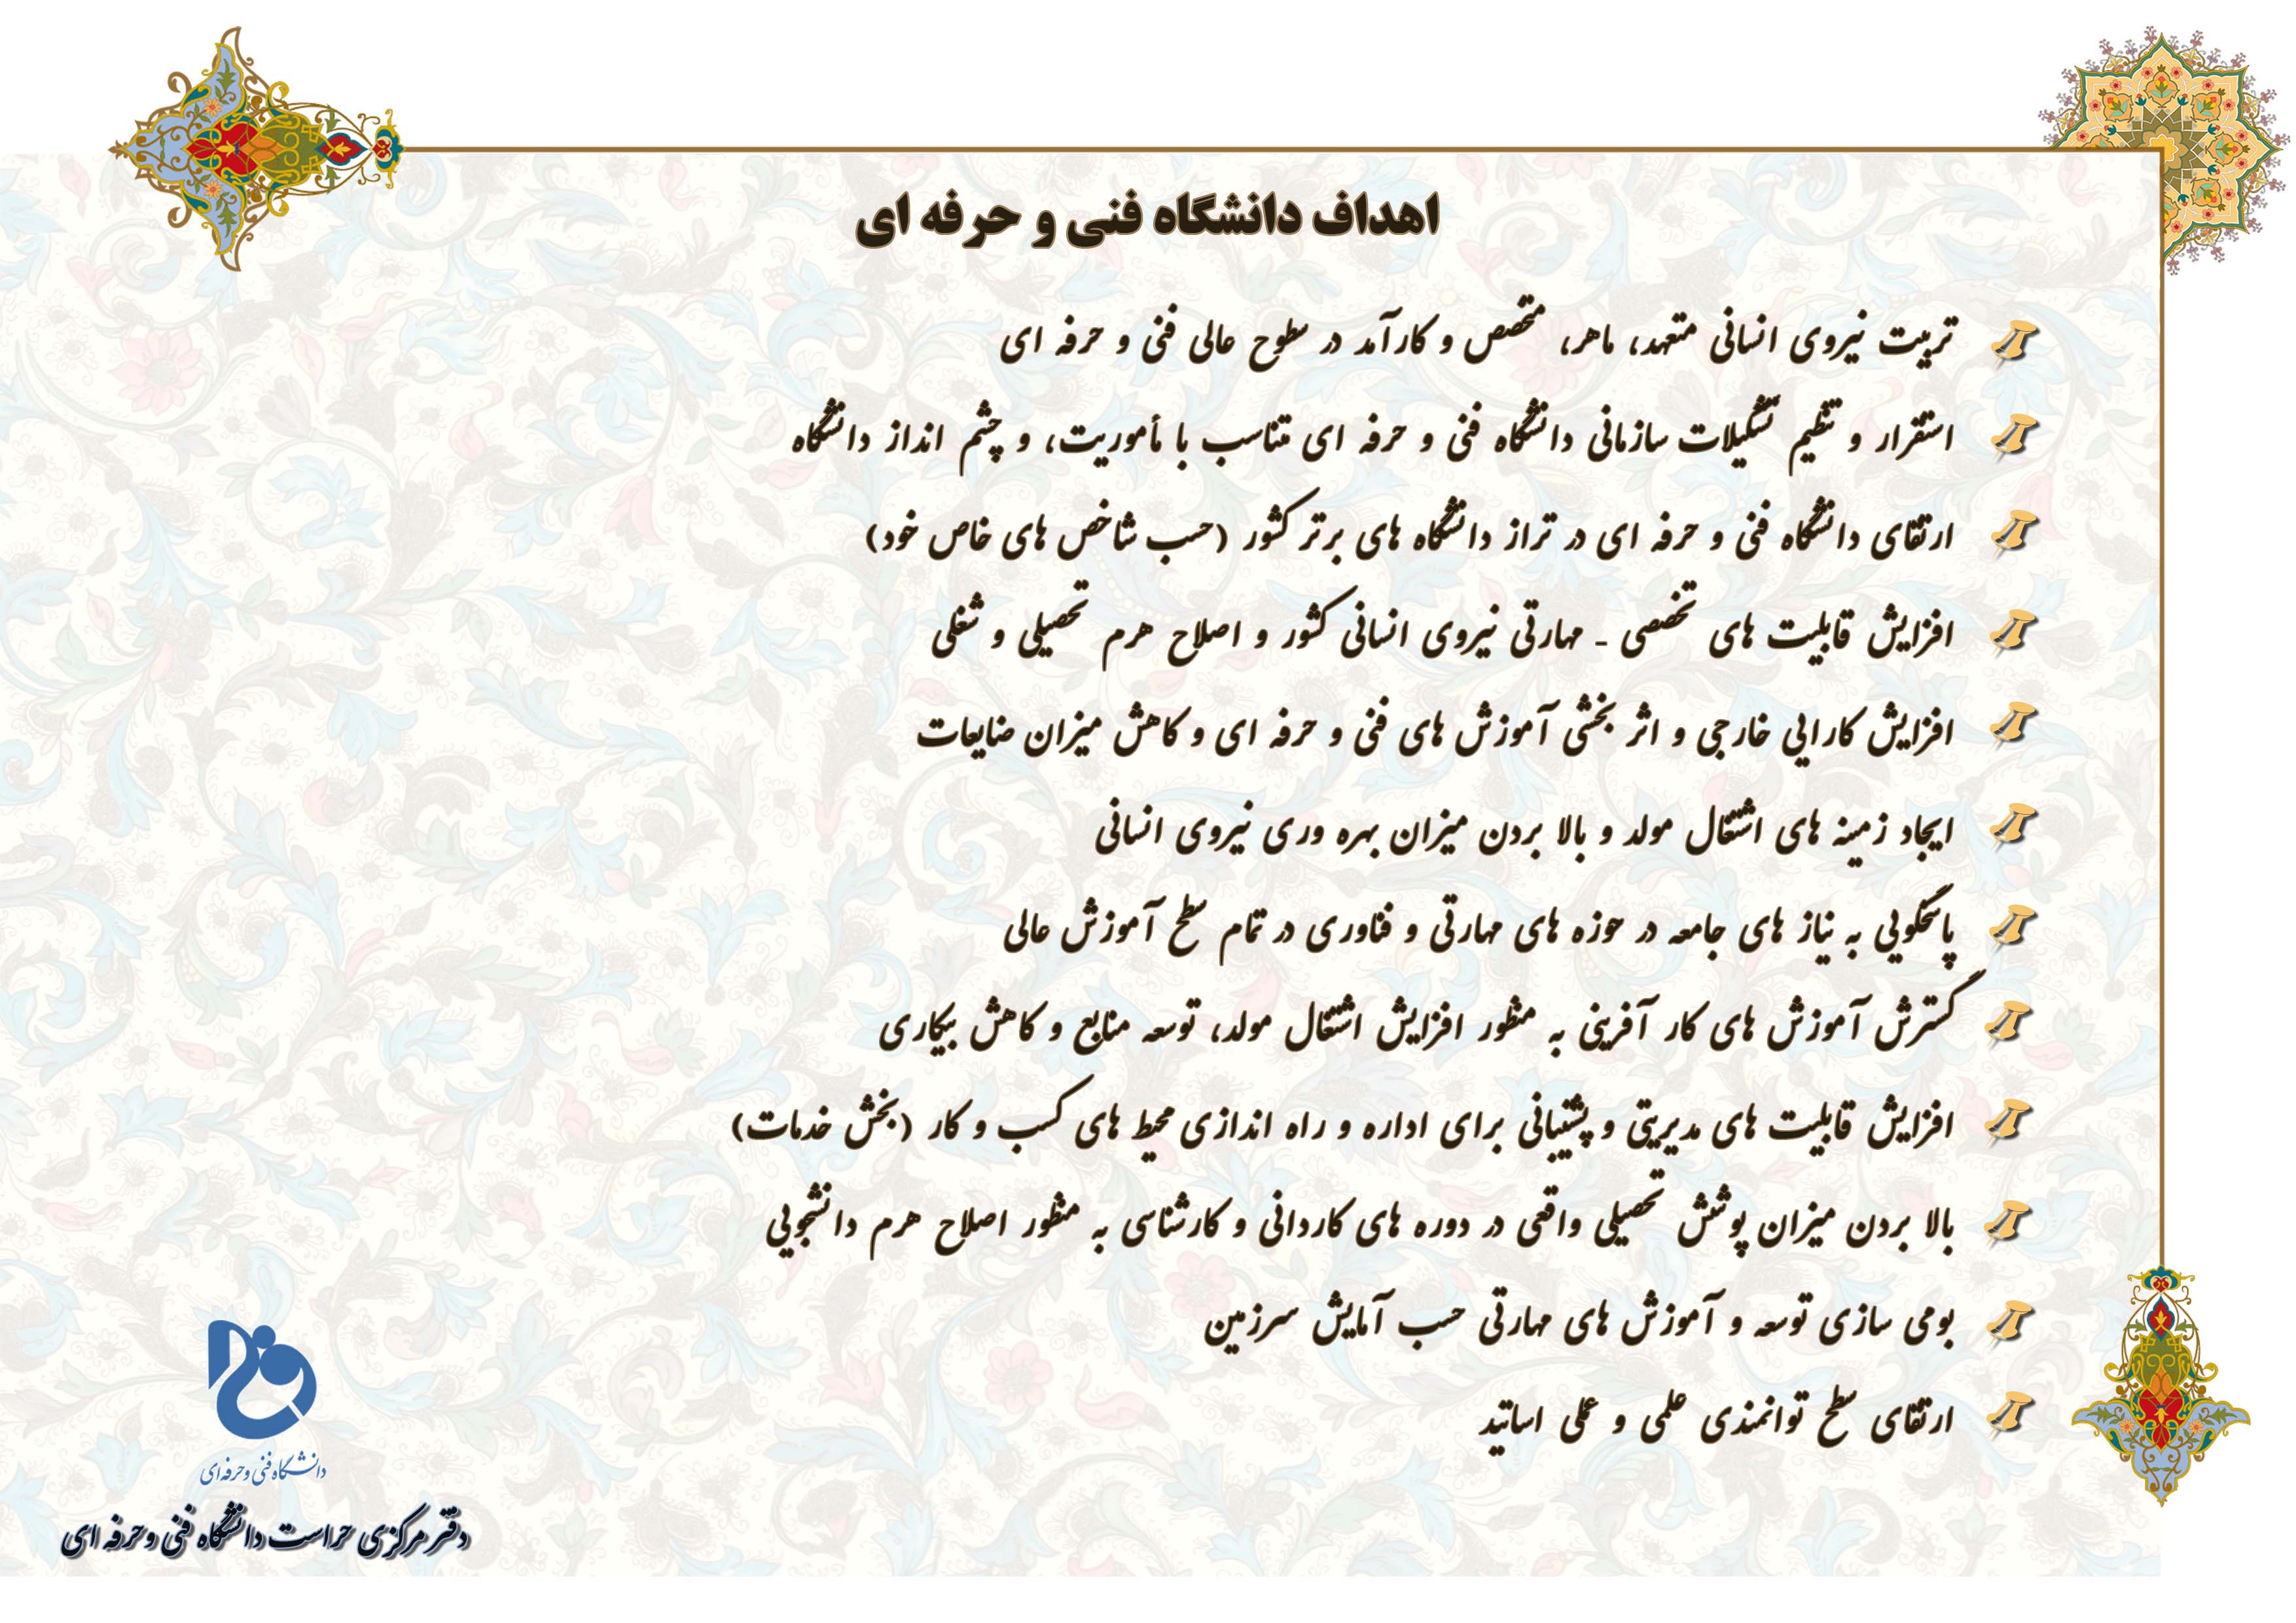 اهداف دانشگاه فنی و حرفه ای
تربیت نیروی انسانی متعهد، ماهر، متخصص و کارآمد در سطوح عالی فنی و حرفه ای
استقرار و تنظیم تشکیلات سازمانی دانشگاه فنی و حرفه ای متناسب با مأموریت، و چشم انداز دانشگاه
ارتقای دانشگاه فنی و حرفه ای در تراز دانشگاه های برتر کشور (حسب شاخص های خاص خود)
افزایش قابلیت های تخصصی - مهارتی نیروی انسانی کشور و اصلاح هرم تحصیلی و شغلی
افزایش کارایی خارجی و اثر بخشی آموزش های فنی و حرفه ای و کاهش میزان ضایعات
ایجاد زمینه های اشتغال مولد و بالا بردن میزان بهره وری نیروی انسانی
پاسخگویی به نیاز های جامعه در حوزه های مهارتی و فناوری در تمام سطح آموزش عالی
گسترش آموزش های کار آفرینی به منظور افزایش اشتغال مولد، توسعه منابع و کاهش بیکاری
افزایش قابلیت های مدیریتی و پشتیبانی برای اداره و راه اندازی محیط های کسب و کار (بخش خدمات)
بالا بردن میزان پوشش تحصیلی واقعی در دوره های کاردانی و کارشناسی به منظور اصلاح هرم دانشجویی
بومی سازی توسعه و آموزش های مهارتی حسب آمایش سرزمین
ارتقای سطح توانمندی علمی و عملی اساتید
دانشگاه فنی و حرفه‌ای
دفتر مرکزی حراست دانشگاه فنی و حرفه ای